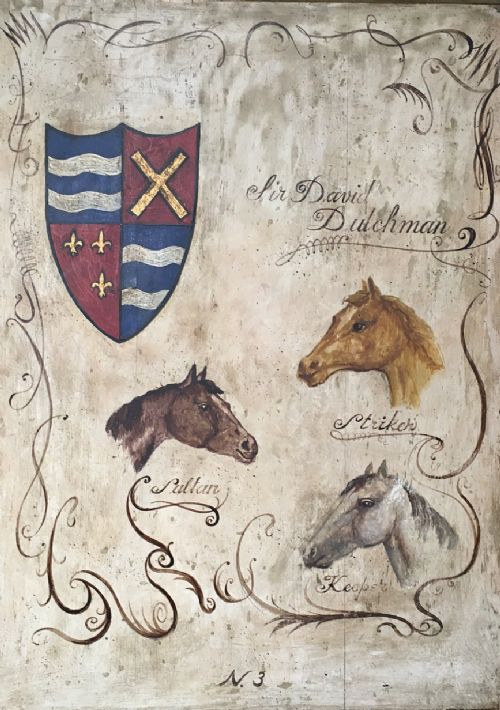 Sir David
Dutchman
Striken
Sultan
Keoper
N. 3